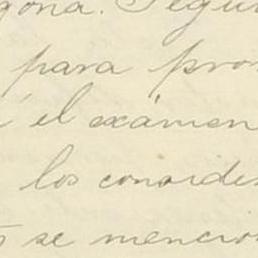 gona. Segun
para pro
el exámen
los conside
se mencio